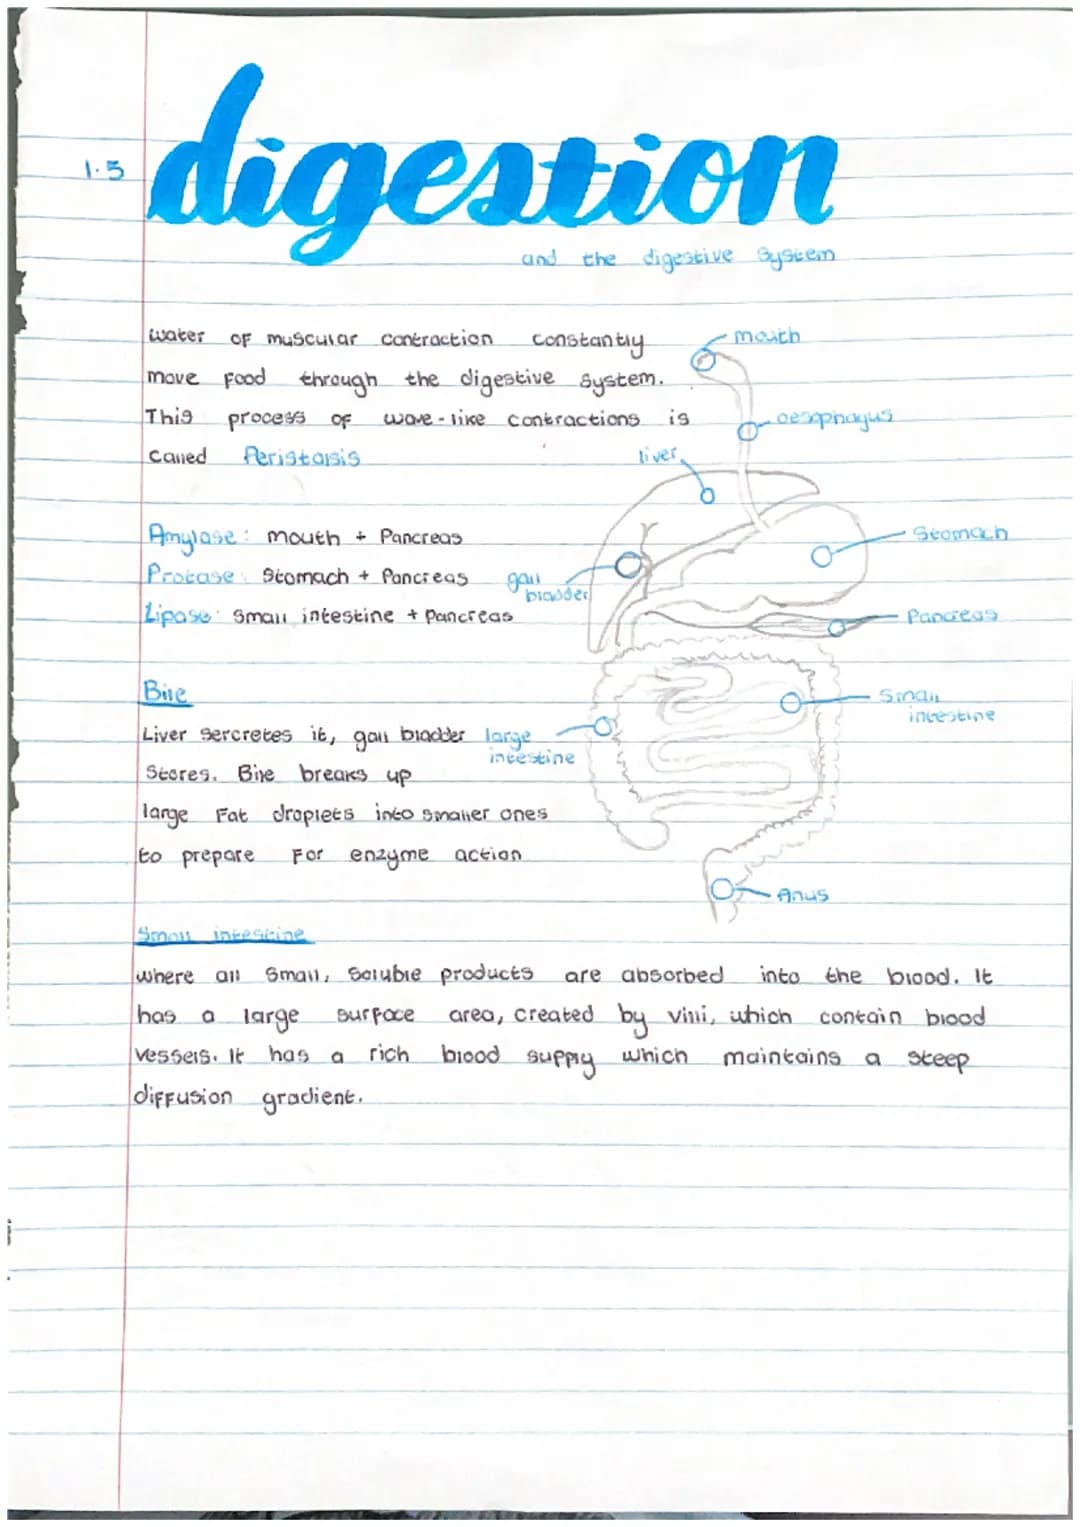 1.5
digestion
and the digestive system
water of muscular contraction constantly
move food through the digestive system.
This process of wave-like contractions is
called Peristalsis
mouth
oesophagus
liver
Stomach
gall
bladder
Pancreas
Small
intestine
large
intestine
Anus
Amylase: mouth + Pancreas
Protase: Stomach + Pancreas
Lipase: Small intestine + Pancreas
Bile
Liver sercretes it, gall bladder
Stores. Bile breaks up
large fat droplets into smaller ones
to prepare for enzyme action
Small intestine
where all small, soluble products are absorbed into the blood. It
has a large surface area, created by villi, which contain blood
vessels. It has a rich blood supply which maintains a steep
diffusion gradient.